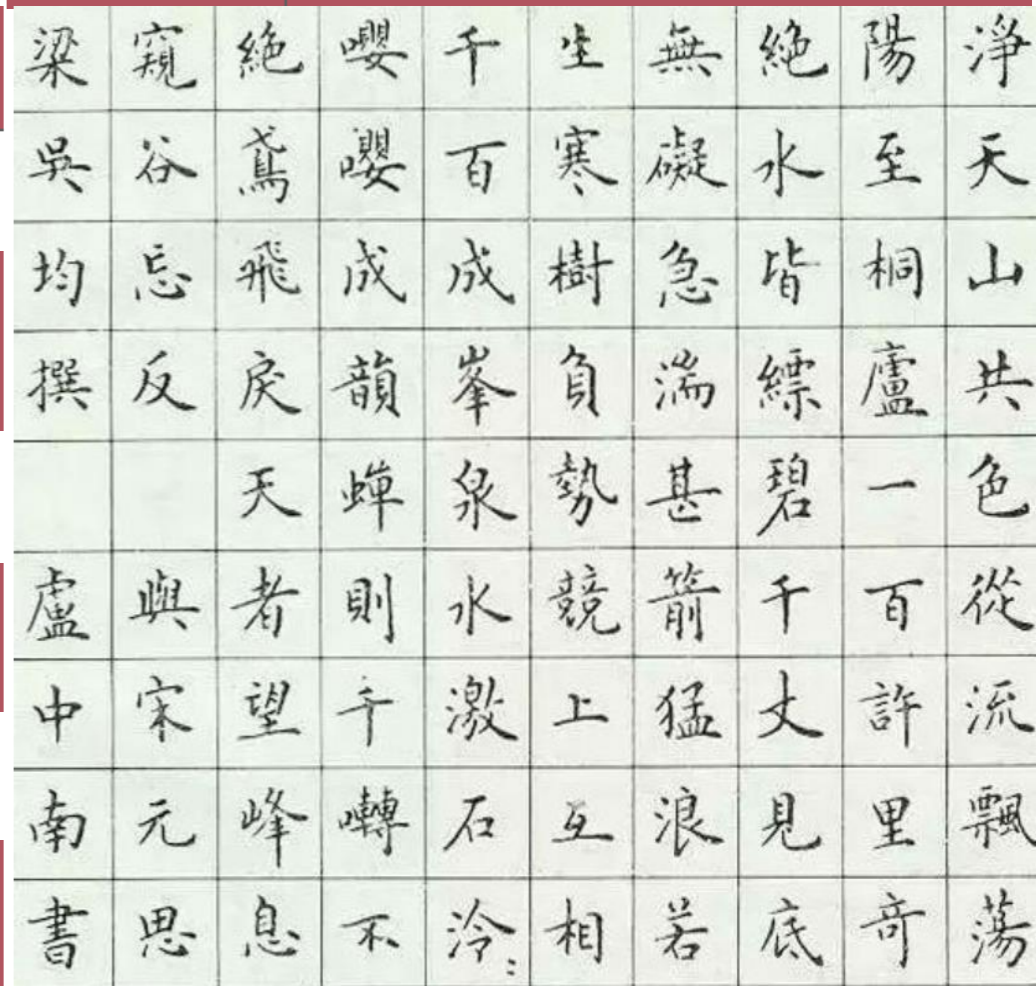 淨天山共色從流飄蕩
陽至桐廬一百許里奇
絶水皆縹碧千丈見底
無礙急湍甚箭猛浪若
生寒樹負勢競上互相
千百成峯泉水激石泠〻
嚶嚶成韻蟬則千囀不
絶鳶飛戾天者望峰息
窺谷忘反 與宋元思
梁吳均撰 盧中南書